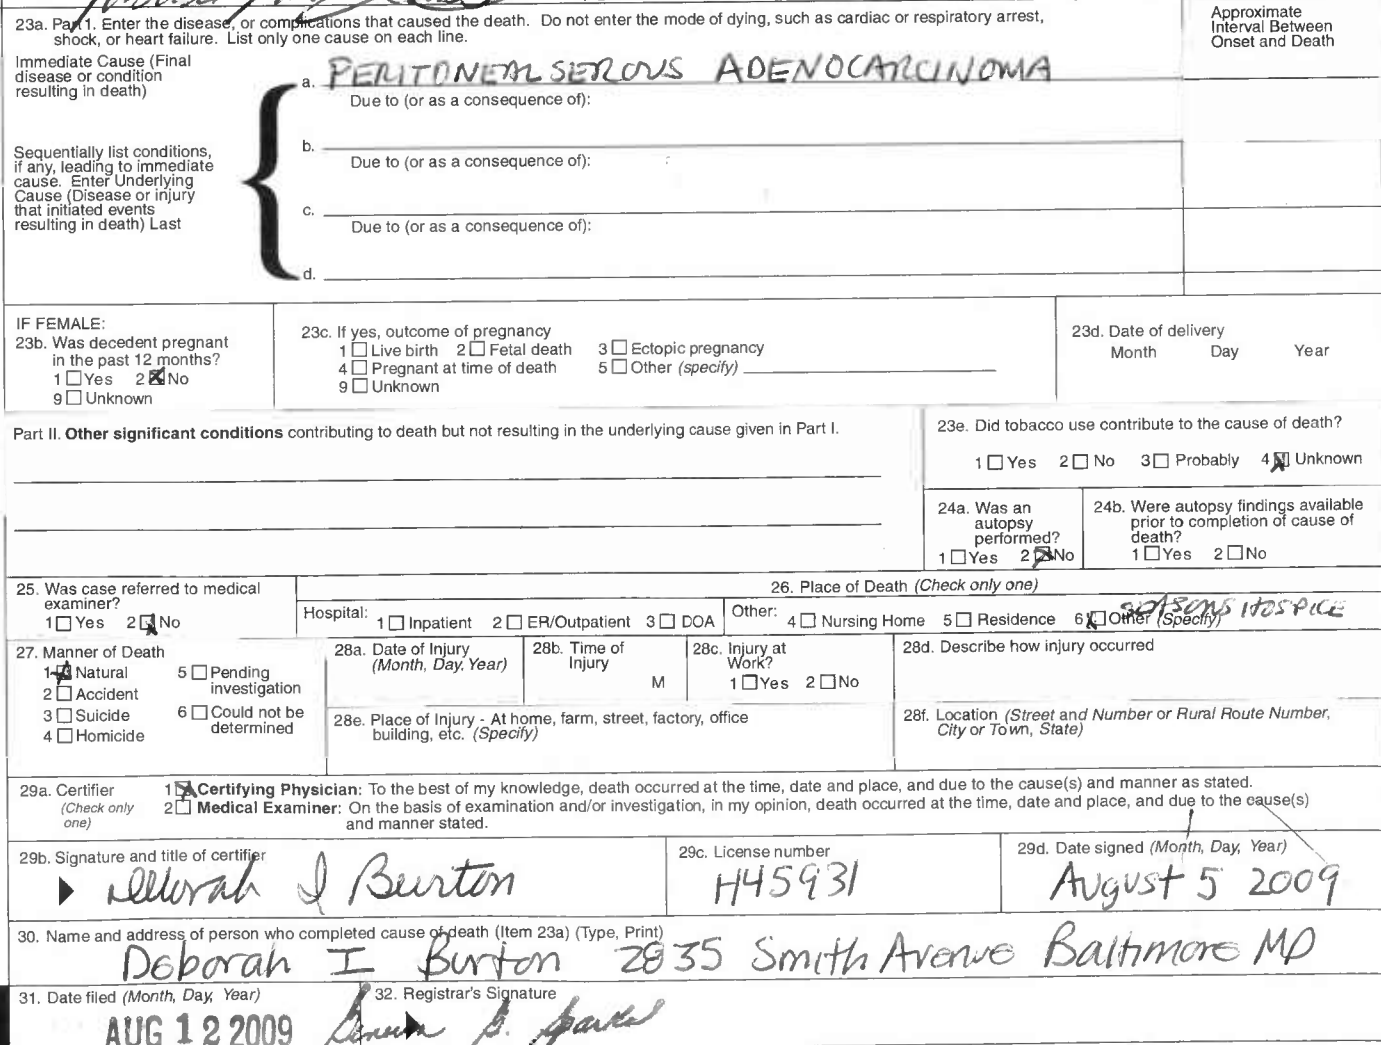 23a. Part 1. Enter the disease, or complications that caused the death. Do not enter the mode of dying, such as cardiac or respiratory arrest,
shock, or heart failure. List only one cause on each line.
Approximate
Interval Between
Onset and Death
Immediate Cause (Final
disease or condition
resulting in death)
a. PERITONEAL SEROUS ADENOCARCINOMA
Due to (or as a consequence of):
Sequentially list conditions,
if any, leading to immediate
cause. Enter Underlying
Cause (Disease or injury
that initiated events
resulting in death) Last
b.
Due to (or as a consequence of):
c.
Due to (or as a consequence of):
d.
IF FEMALE:
23b. Was decedent pregnant
in the past 12 months?
1 ☐ Yes 2 ☒ No
9 ☐ Unknown
23c. If yes, outcome of pregnancy
1 ☐ Live birth 2 ☐ Fetal death 3 ☐ Ectopic pregnancy
4 ☐ Pregnant at time of death 5 ☐ Other (specify)
9 ☐ Unknown
23d. Date of delivery
Month Day Year
Part II. Other significant conditions contributing to death but not resulting in the underlying cause given in Part I.
23e. Did tobacco use contribute to the cause of death?
1 ☐ Yes 2 ☐ No 3 ☐ Probably 4 ☒ Unknown
24a. Was an
autopsy
performed?
1 ☐ Yes 2 ☒ No
24b. Were autopsy findings available
prior to completion of cause of
death?
1 ☐ Yes 2 ☐ No
25. Was case referred to medical
examiner?
1 ☐ Yes 2 ☒ No
26. Place of Death (Check only one)
Hospital: 1 ☐ Inpatient 2 ☐ ER/Outpatient 3 ☐ DOA
Other: 4 ☐ Nursing Home 5 ☐ Residence 6 ☒ Other (Specify) SEASONS HOSPICE
27. Manner of Death
1 ☒ Natural 5 ☐ Pending
investigation
2 ☐ Accident
3 ☐ Suicide 6 ☐ Could not be
determined
4 ☐ Homicide
28a. Date of Injury
(Month, Day, Year)
28b. Time of
Injury
M
28c. Injury at
Work?
1 ☐ Yes 2 ☐ No
28d. Describe how injury occurred
28e. Place of Injury - At home, farm, street, factory, office
building, etc. (Specify)
28f. Location (Street and Number or Rural Route Number,
City or Town, State)
29a. Certifier
(Check only
one)
1 ☒ Certifying Physician: To the best of my knowledge, death occurred at the time, date and place, and due to the cause(s) and manner as stated.
2 ☐ Medical Examiner: On the basis of examination and/or investigation, in my opinion, death occurred at the time, date and place, and due to the cause(s)
and manner stated.
29b. Signature and title of certifier
Deborah I Burton
29c. License number
H45931
29d. Date signed (Month, Day, Year)
August 5 2009
30. Name and address of person who completed cause of death (Item 23a) (Type, Print)
Deborah I Burton 2835 Smith Avenue Baltimore MD
31. Date filed (Month, Day, Year)
AUG 12 2009
32. Registrar's Signature